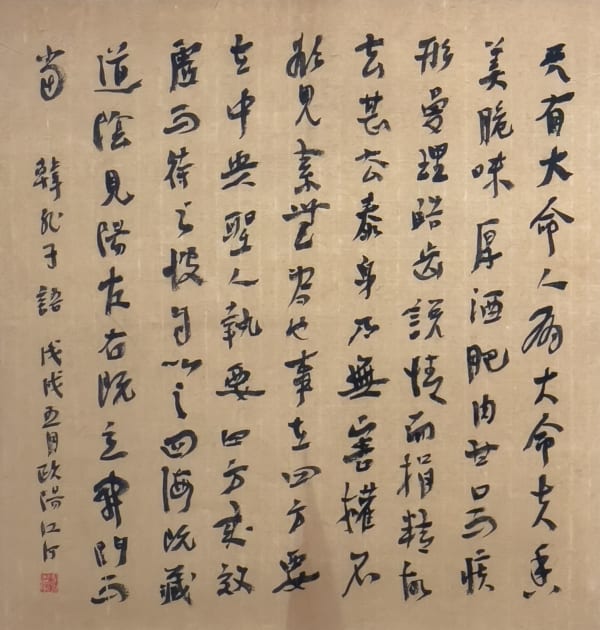 天有大命人有大命夫香
美脆味厚酒肥肉甘口而疾
形曼理皓齒說情而捐精故
去甚去泰身乃無害權不
欲見素無為也事在四方要
在中央聖人執要四方來效
虛而待之彼自以之四海既藏
道陰見陽左右既立開門而
當 韓非子語 戊戌五月歐陽江河